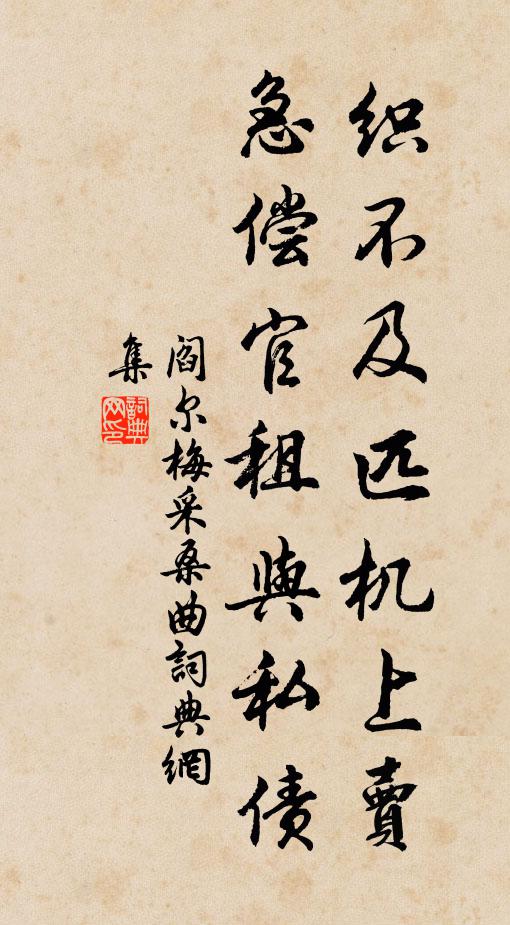 织不及匹机上賣
急偿官租與私债
阎尔梅采桑曲詞典網
集
詞典
网印